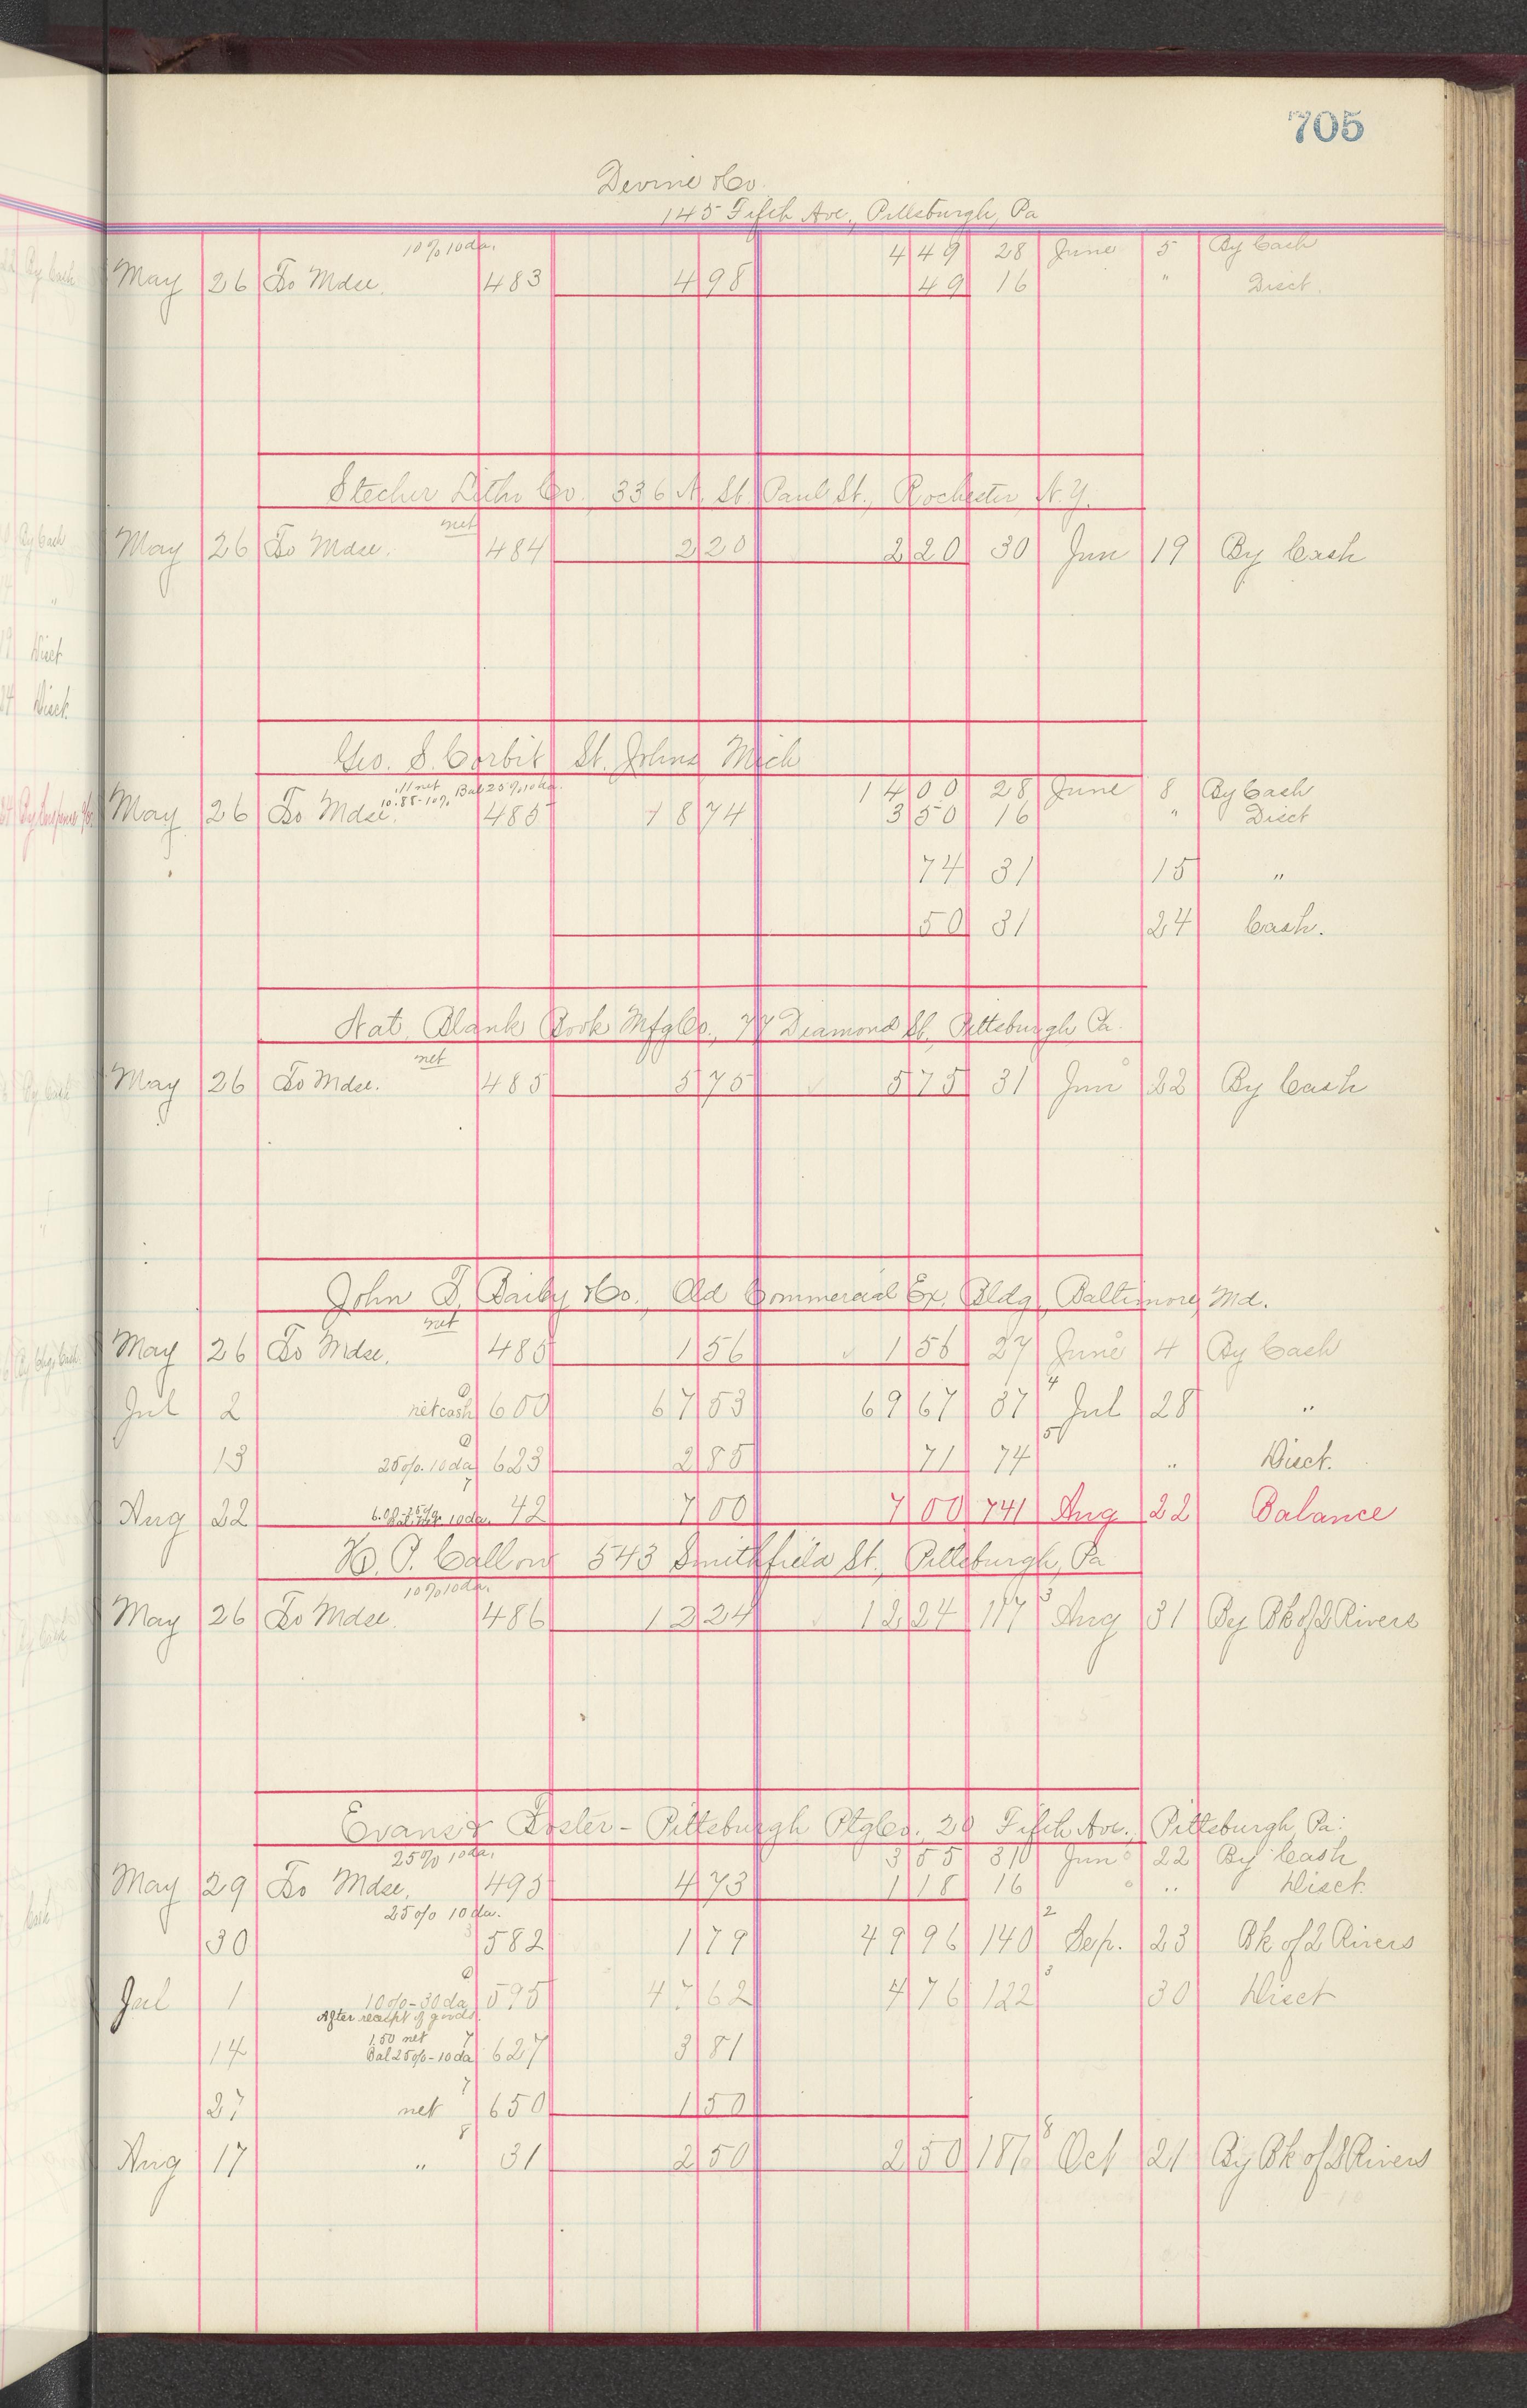 705
Devine & Co.
145 Fifth Ave., Pittsburgh, Pa
10% 10 da. 4 49 28 June 5 By Cash
May 26 To Mdse. 483 4 98 49 16 " Disct.
Stecher Litho Co., 336 N. St. Paul St., Rochester, N.Y.
net
May 26 To Mdse. 484 2 20 2 20 30 Jun 19 By Cash
Geo. S. Corbit St. Johns Mich
.111 net Bal 25% 10 da. 14 00 28 June 8 By Cash
10.85-10%
May 26 To Mdse. 485 18 74 3 50 16 " Disct
74 31 15 "
50 31 24 Cash.
Nat. Blank Book Mfg Co., 77 Diamond St., Pittsburgh Pa.
net
May 26 To Mdse. 485 5 75 5 75 31 Jun 22 By Cash
John T. Baily & Co., Old Commercial Ex. Bldg, Baltimore, Md.
net
May 26 To Mdse. 485 1 56 1 56 27 June 4 By Cash
Jul 2 net cash 6 600 67 53 69 67 37 4 Jul 28 "
13 25% 10 da 6 623 2 85 71 74 5 " Disct.
Aug 22 10 da. 7 42 7 00 7 00 741 Aug 22 Balance
H. P. Callow 543 Smithfield St., Pittsburgh, Pa
10% 10 da.
May 26 To Mdse 486 12 24 12 24 117 3 Aug 31 By Bk of 2 Rivers
Evans & Foster - Pittsburgh Ptg Co. 20 Fifth Ave., Pittsburgh, Pa.
25% 10 da. 3 55 310 Jun 22 By Cash
May 29 To Mdse. 493 4 73 1 18 16 " Disct.
25% 10 da.
30 582 1 79 49 96 140 2 Sep. 23 Bk of 2 Rivers
Jul 1 10%-30 da 6 595 47 62 4 76 122 3 30 Disct
After receipt of goods.
1.50 net
14 Bal 25%-10 da 7 627 3 81
27 net 7 650 1 50
Aug 17 " 8 31 2 50 2 50 187 8 Oct 21 By Bk of 2 Rivers